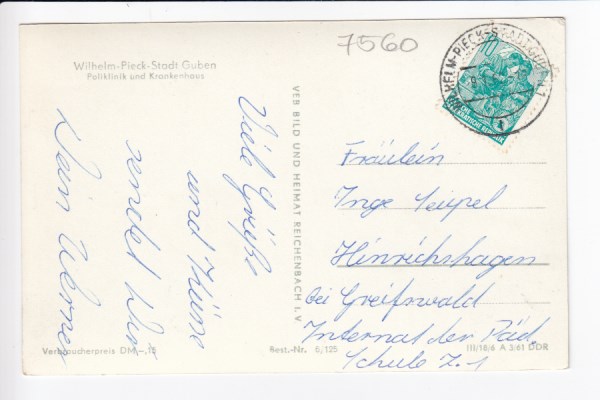 7560
Wilhelm-Pieck-Stadt Guben
Poliklinik und Krankenhaus
Viele Grüße
und Küsse
sendet Dir
Dein Werner
VEB BILD UND HEIMAT REICHENBACH I. V.
WILHELM-PIECK-STADT GUBEN
10
Fräulein
Inge Seipel
Hinrichshagen
bei Greifswald
Internat der Päd.
Schule Z. 1
Verbraucherpreis DM -,15
Best.-Nr. 6/125
III/18/6 A 3/61 DDR